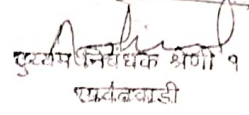 दुय्यम निबंधक श्रेणी १
सावंतवाडी